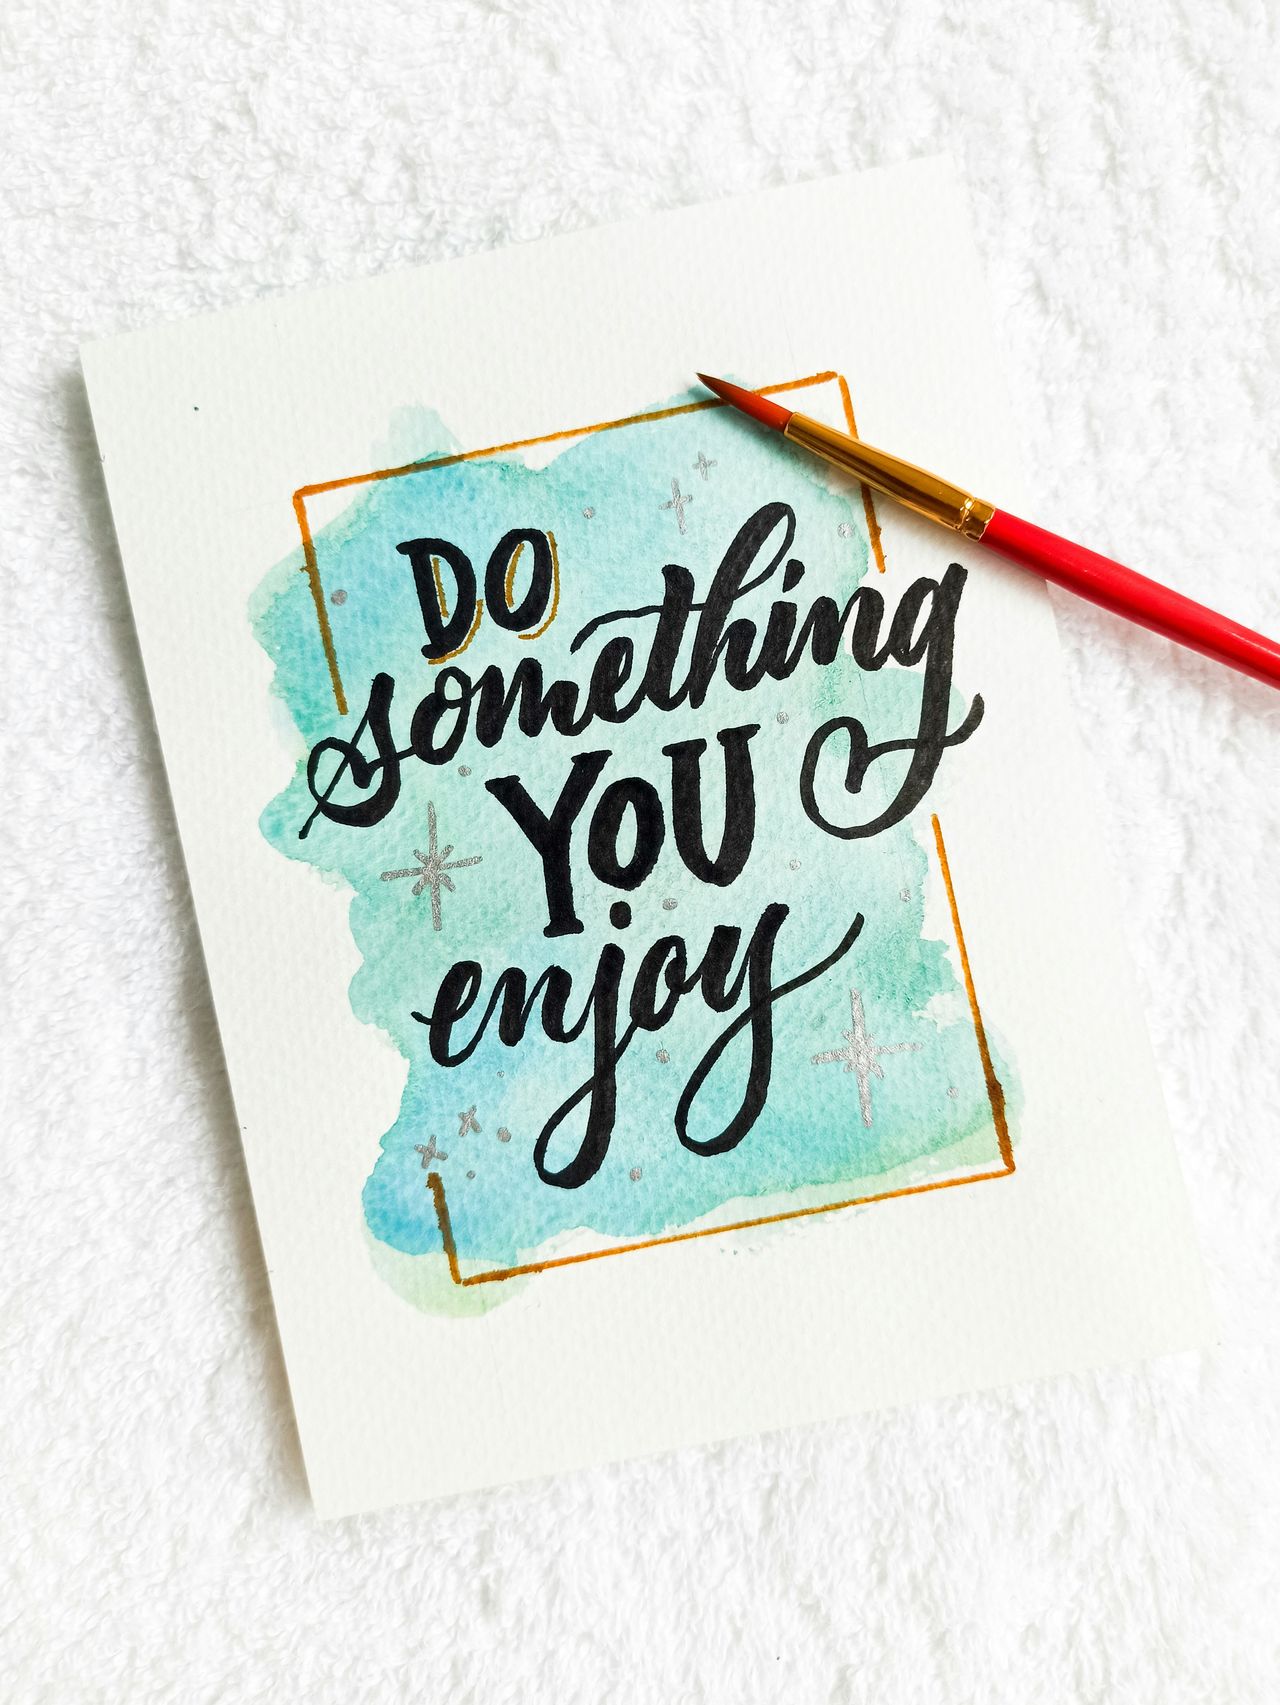 DO
something
YOU
enjoy